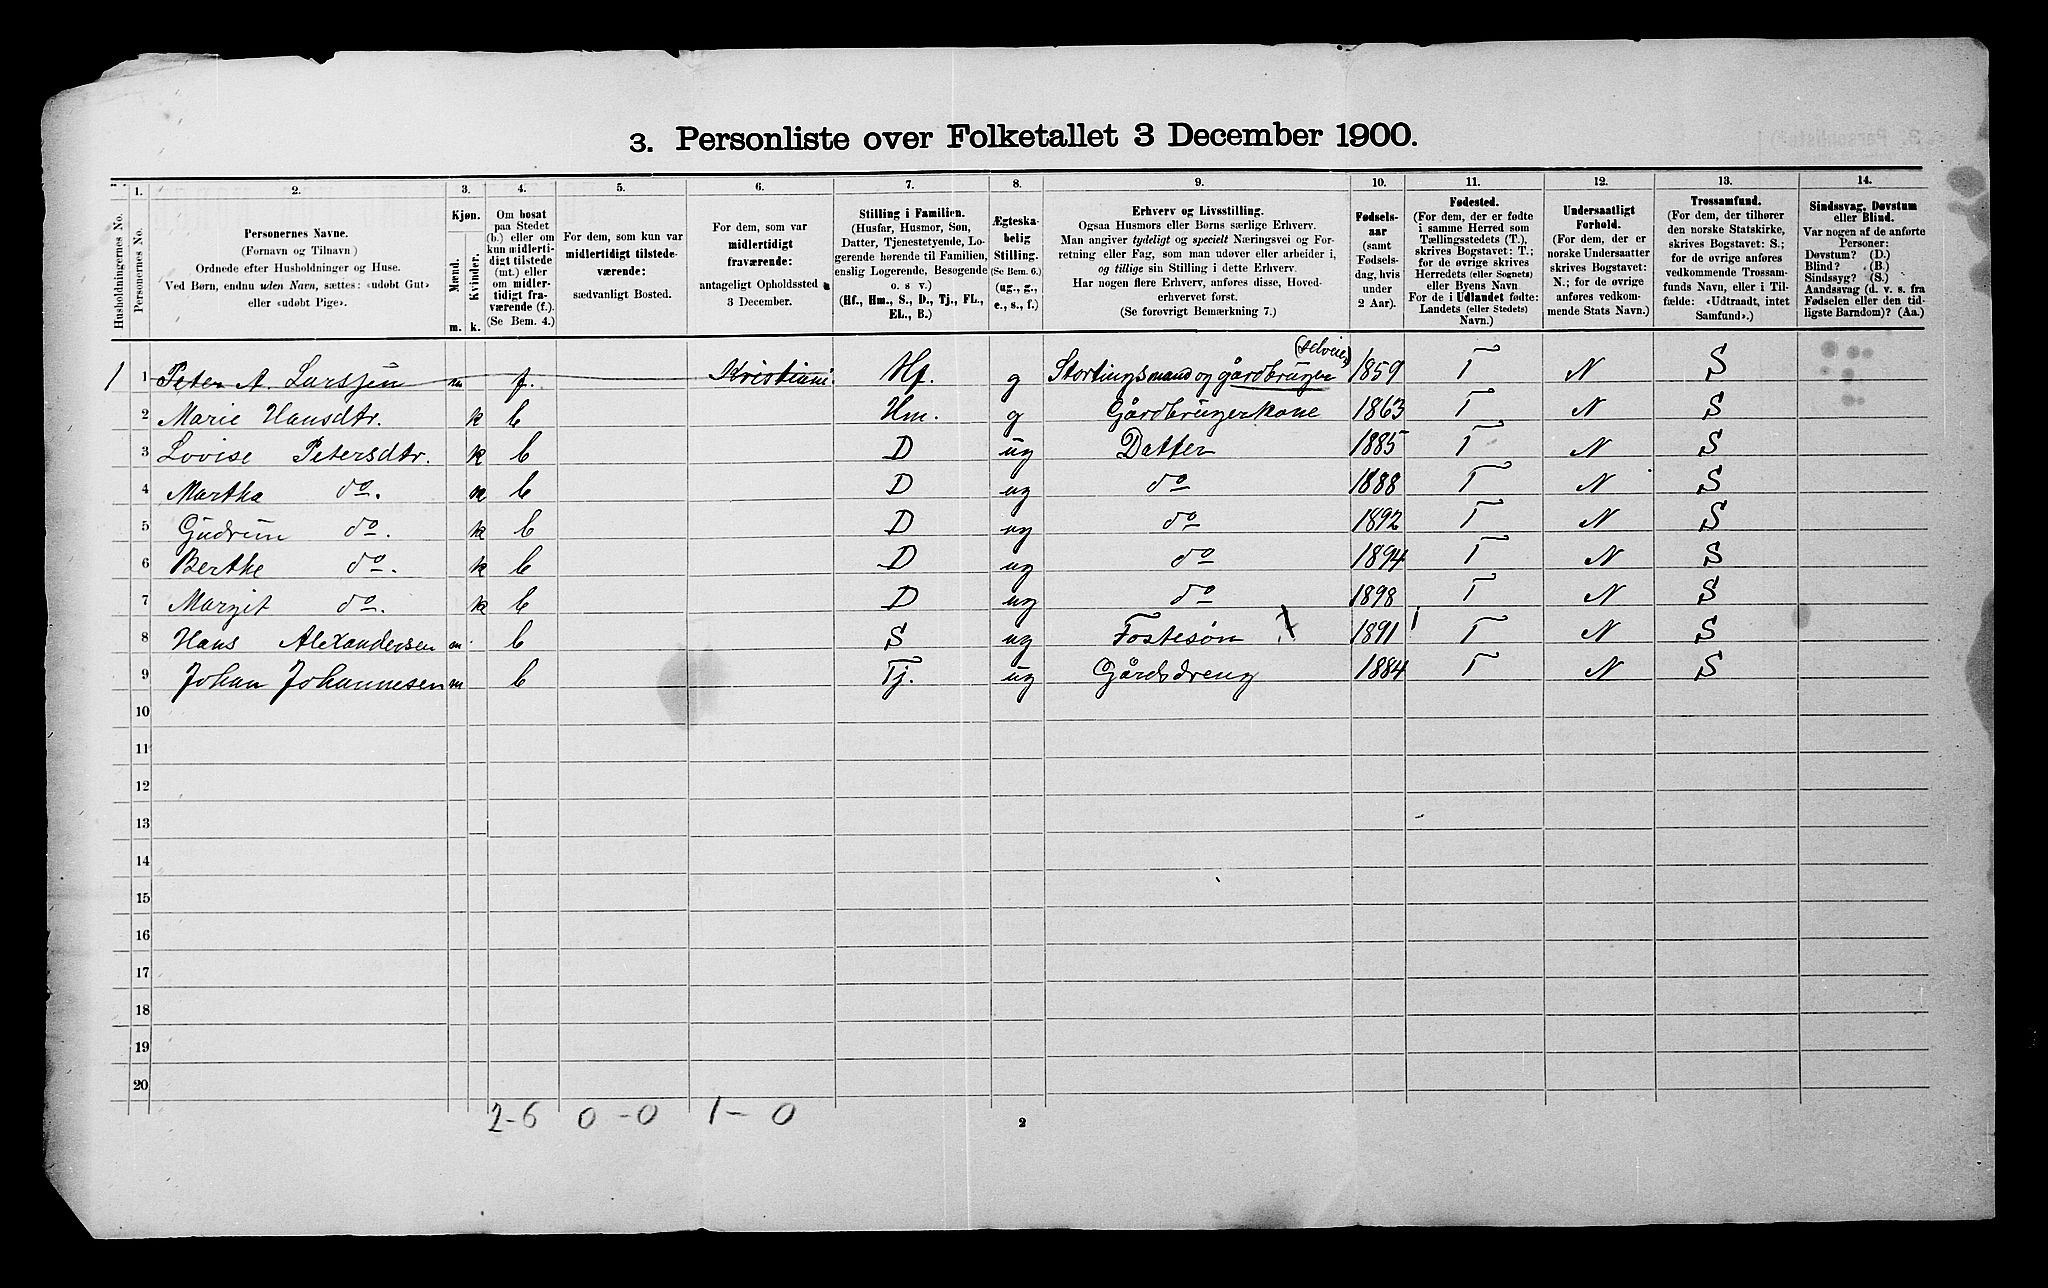 3. Personliste over Folketallet 3 December 1900.
1. 2. 3. 4. 5. 6. 7. 8. 9. 10. 11. 12. 13. 14.
Husholdningernes No.
Personernes No.
Personernes Navne.
(Fornavn og Tilnavn)
Ordnede efter Husholdninger og Huse.
Ved Børn, endnu uden Navn, sættes: «udøbt Gut»
eller «udøbt Pige».
Kjøn.
Mænd.
Kvinder.
m. k.
Om bosat
paa Stedet
(b.) eller om
kun midlerti-
digt tilstede
(mt.) eller
om midler-
tidigt fra-
værende (f.).
(Se Bem. 4.)
For dem, som kun var
midlertidigt tilstede-
værende:
sædvanligt Bosted.
For dem, som var
midlertidigt
fraværende:
antageligt Opholdssted
3 December.
Stilling i Familien.
(Husfar, Husmor, Søn,
Datter, Tjenestetyende, Lo-
gerende hørende til Familien,
enslig Logerende, Besøgende
o. s. v.)
(Hf., Hm., S., D., Tj., FL.,
EL., B.)
Ægteska-
belig
Stilling.
(Se Bem. 6.)
(ug., g.,
e., s., f.)
Erhverv og Livsstilling.
Ogsaa Husmors eller Børns særlige Erhverv.
Man angiver tydeligt og specielt Næringsvei og For-
retning eller Fag, som man udøver eller arbeider i,
og tillige sin Stilling i dette Erhverv.
Har nogen flere Erhverv, anføres disse, Hoved-
erhvervet først.
(Se forøvrigt Bemærkning 7.)
Fødsels-
aar
(samt
Fødsels-
dag, hvis
under
2 Aar).
Fødested.
(For dem, der er fødte
i samme Herred som
Tællingsstedets (T.),
skrives Bogstavet: T.;
for de øvrige skrives
Herredets (eller Sognets)
eller Byens Navn
For de i Udlandet fødte:
Landets (eller Stedets)
Navn.)
Undersaatligt
Forhold.
(For dem, der er
norske Undersaatter
skrives Bogstavet:
N.; for de øvrige
anføres vedkom-
mende Stats Navn.)
Trossamfund.
(For dem, der tilhører
den norske Statskirke,
skrives Bogstavet: S.;
for de øvrige anføres
vedkommende Trossam-
funds Navn, eller i Til-
fælde: «Udtraadt, intet
Samfund».)
Sindssvag, Døvstum
eller Blind.
Var nogen af de anførte
Personer:
Døvstum? (D.)
Blind? (B.)
Sindssyg? (S.)
Aandssvag (d. v. s. fra
Fødselen eller den tid-
ligste Barndom)? (Aa.)
(selveier)
1 1 Peter A. Larssen m f. Kristiani. Hf. g Stortingsmand og gårdbruger 1859 T N S
2 Marie Hansdtr. k b Hm. g Gårdbrugerkone 1863 T N S
3 Lovise Petersdtr. k b D ug Datter 1885 T N S
4 Martha do. k b D ug do 1888 T N S
5 Gudrun do. k b D ug do 1892 T N S
6 Berthe do. k b D ug do 1894 T N S
7 Margit do. k b D ug do 1898 T N S
8 Hans Alexandersen m. b S ug Fostesøn 1891 T N S
9 Johan Johannesen m b Tj. ug Gårdsdreng 1884 T N S
10
11
12
13
14
15
16
17
18
19
20
2-6 0-0 1-0
2